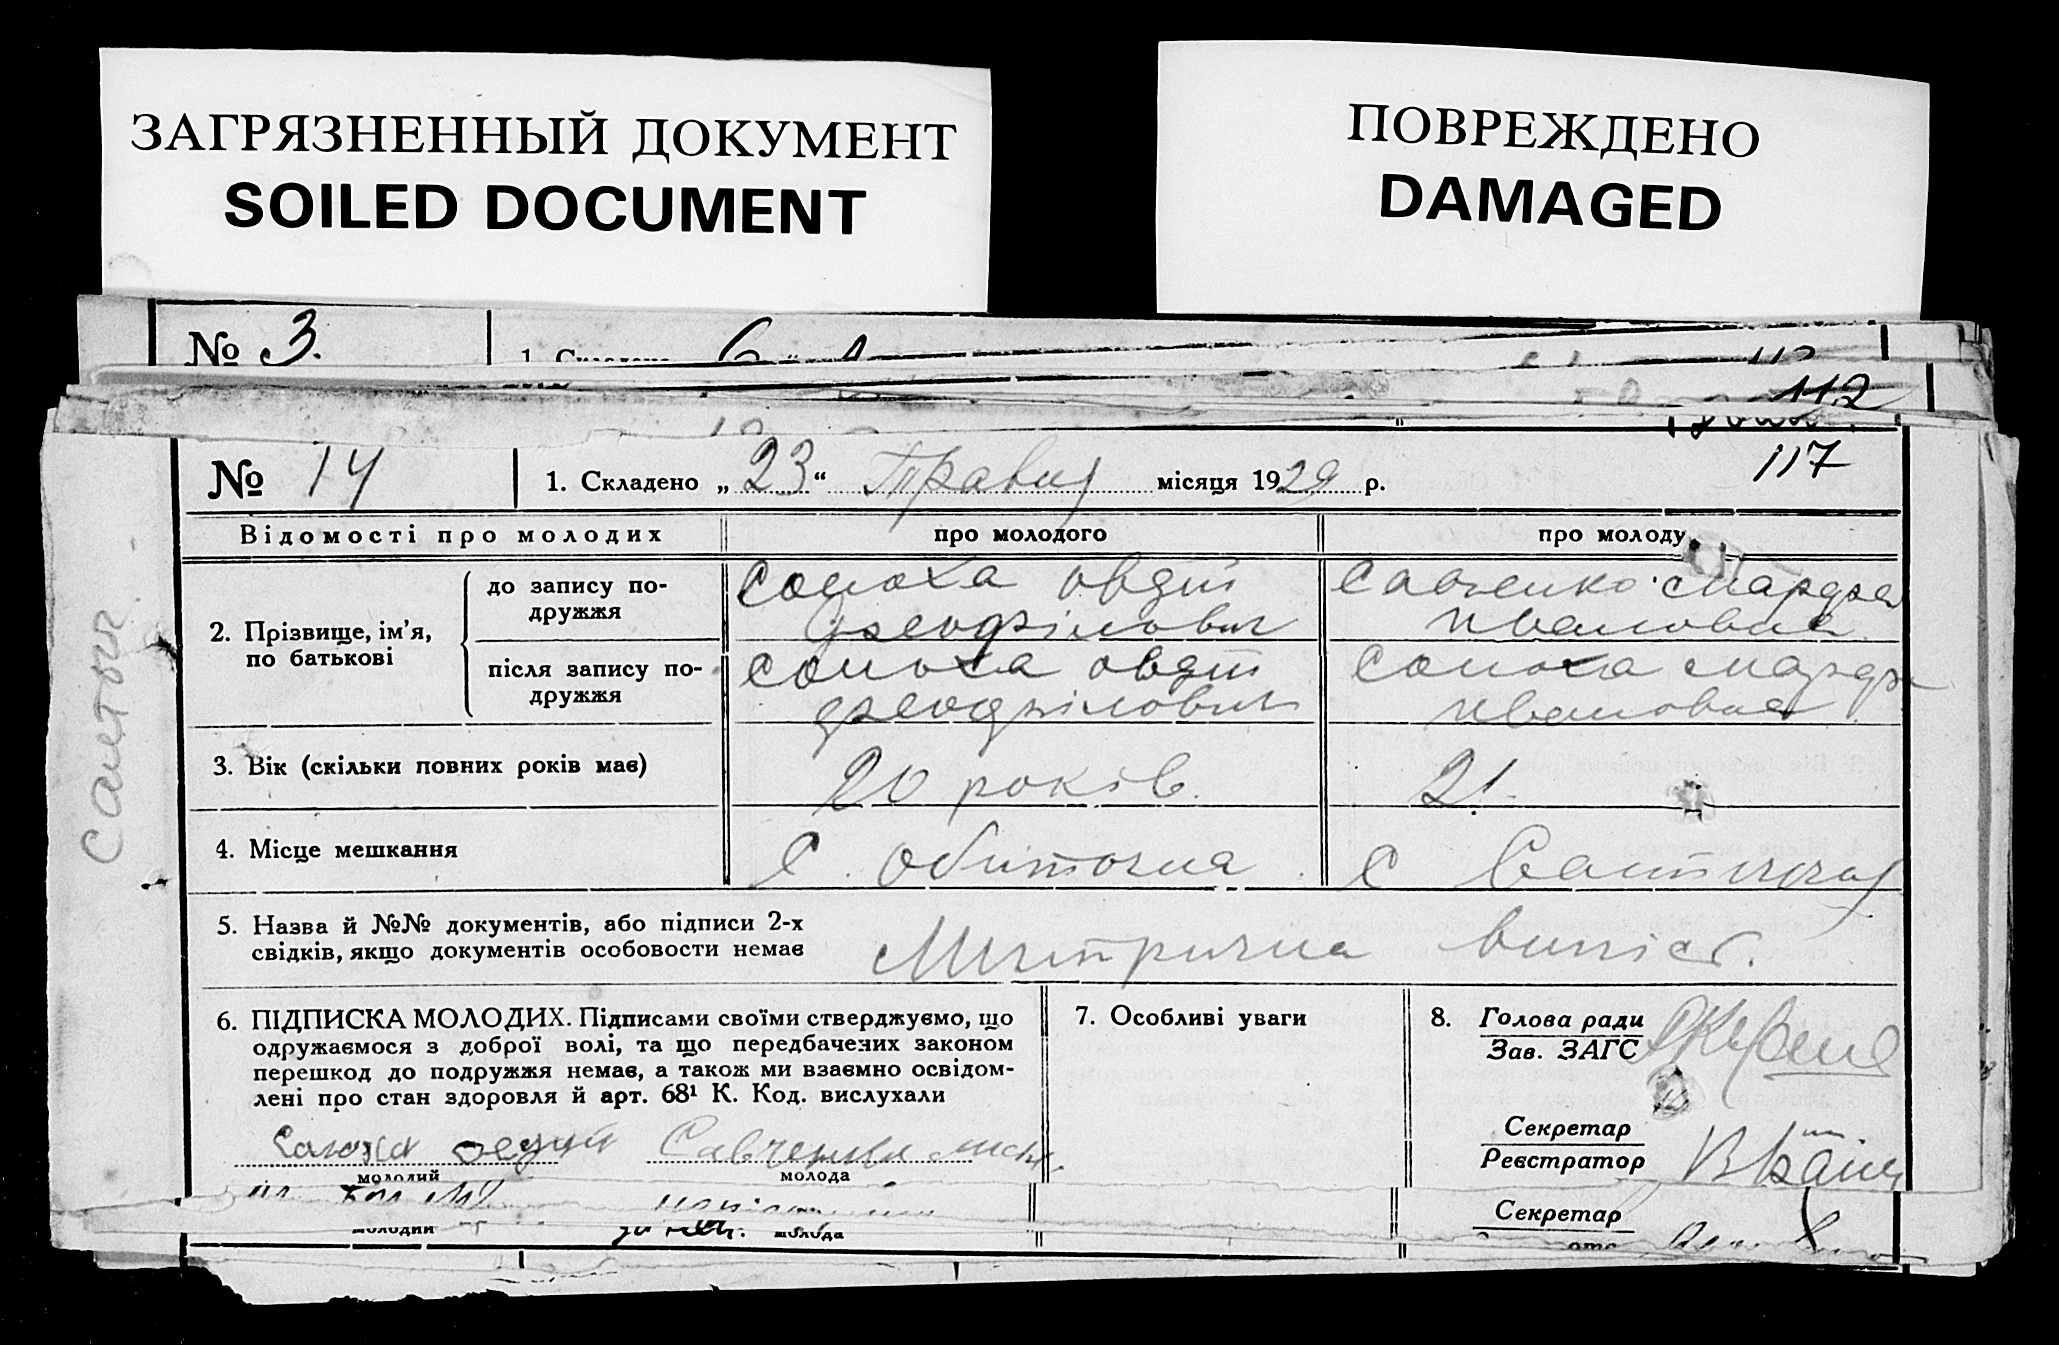 ЗАГРЯЗНЕННЫЙ ДОКУМЕНТ
SOILED DOCUMENT
ПОВРЕЖДЕНО
DAMAGED
№ 3.
1. Складено
112
№ 14
1. Складено „23“ Травня місяця 1929 р.
117
Відомості про молодих
про молодого
про молоду
2. Прізвище, ім'я, по батькові
до запису по-
дружжя
Сопоха Овдій
Феофілович
Савченко Марфа
Ивановна
після запису по-
дружжя
Сопоха Овдій
Феофілович
Сопоха Марфа
Ивановна
3. Вік (скільки повних років має)
20 років.
21.
4. Місце мешкання
С. Обиточна
С
5. Назва й №№ документів, або підписи 2-х
свідків, якщо документів особовости немає
Метрична випись.
6. ПІДПИСКА МОЛОДИХ. Підписами своїми стверджуємо, що
одружаємося з доброї волі, та що передбачених законом
перешкод до подружжя немає, а також ми взаємно освідом-
лені про стан здоровля й арт. 68¹ К. Код. вислухали
Савченко
молодий
молода
7. Особливі уваги
8. Голова ради
Зав. ЗАГС
Секретар
Реєстратор
молодий
молода
Секретар